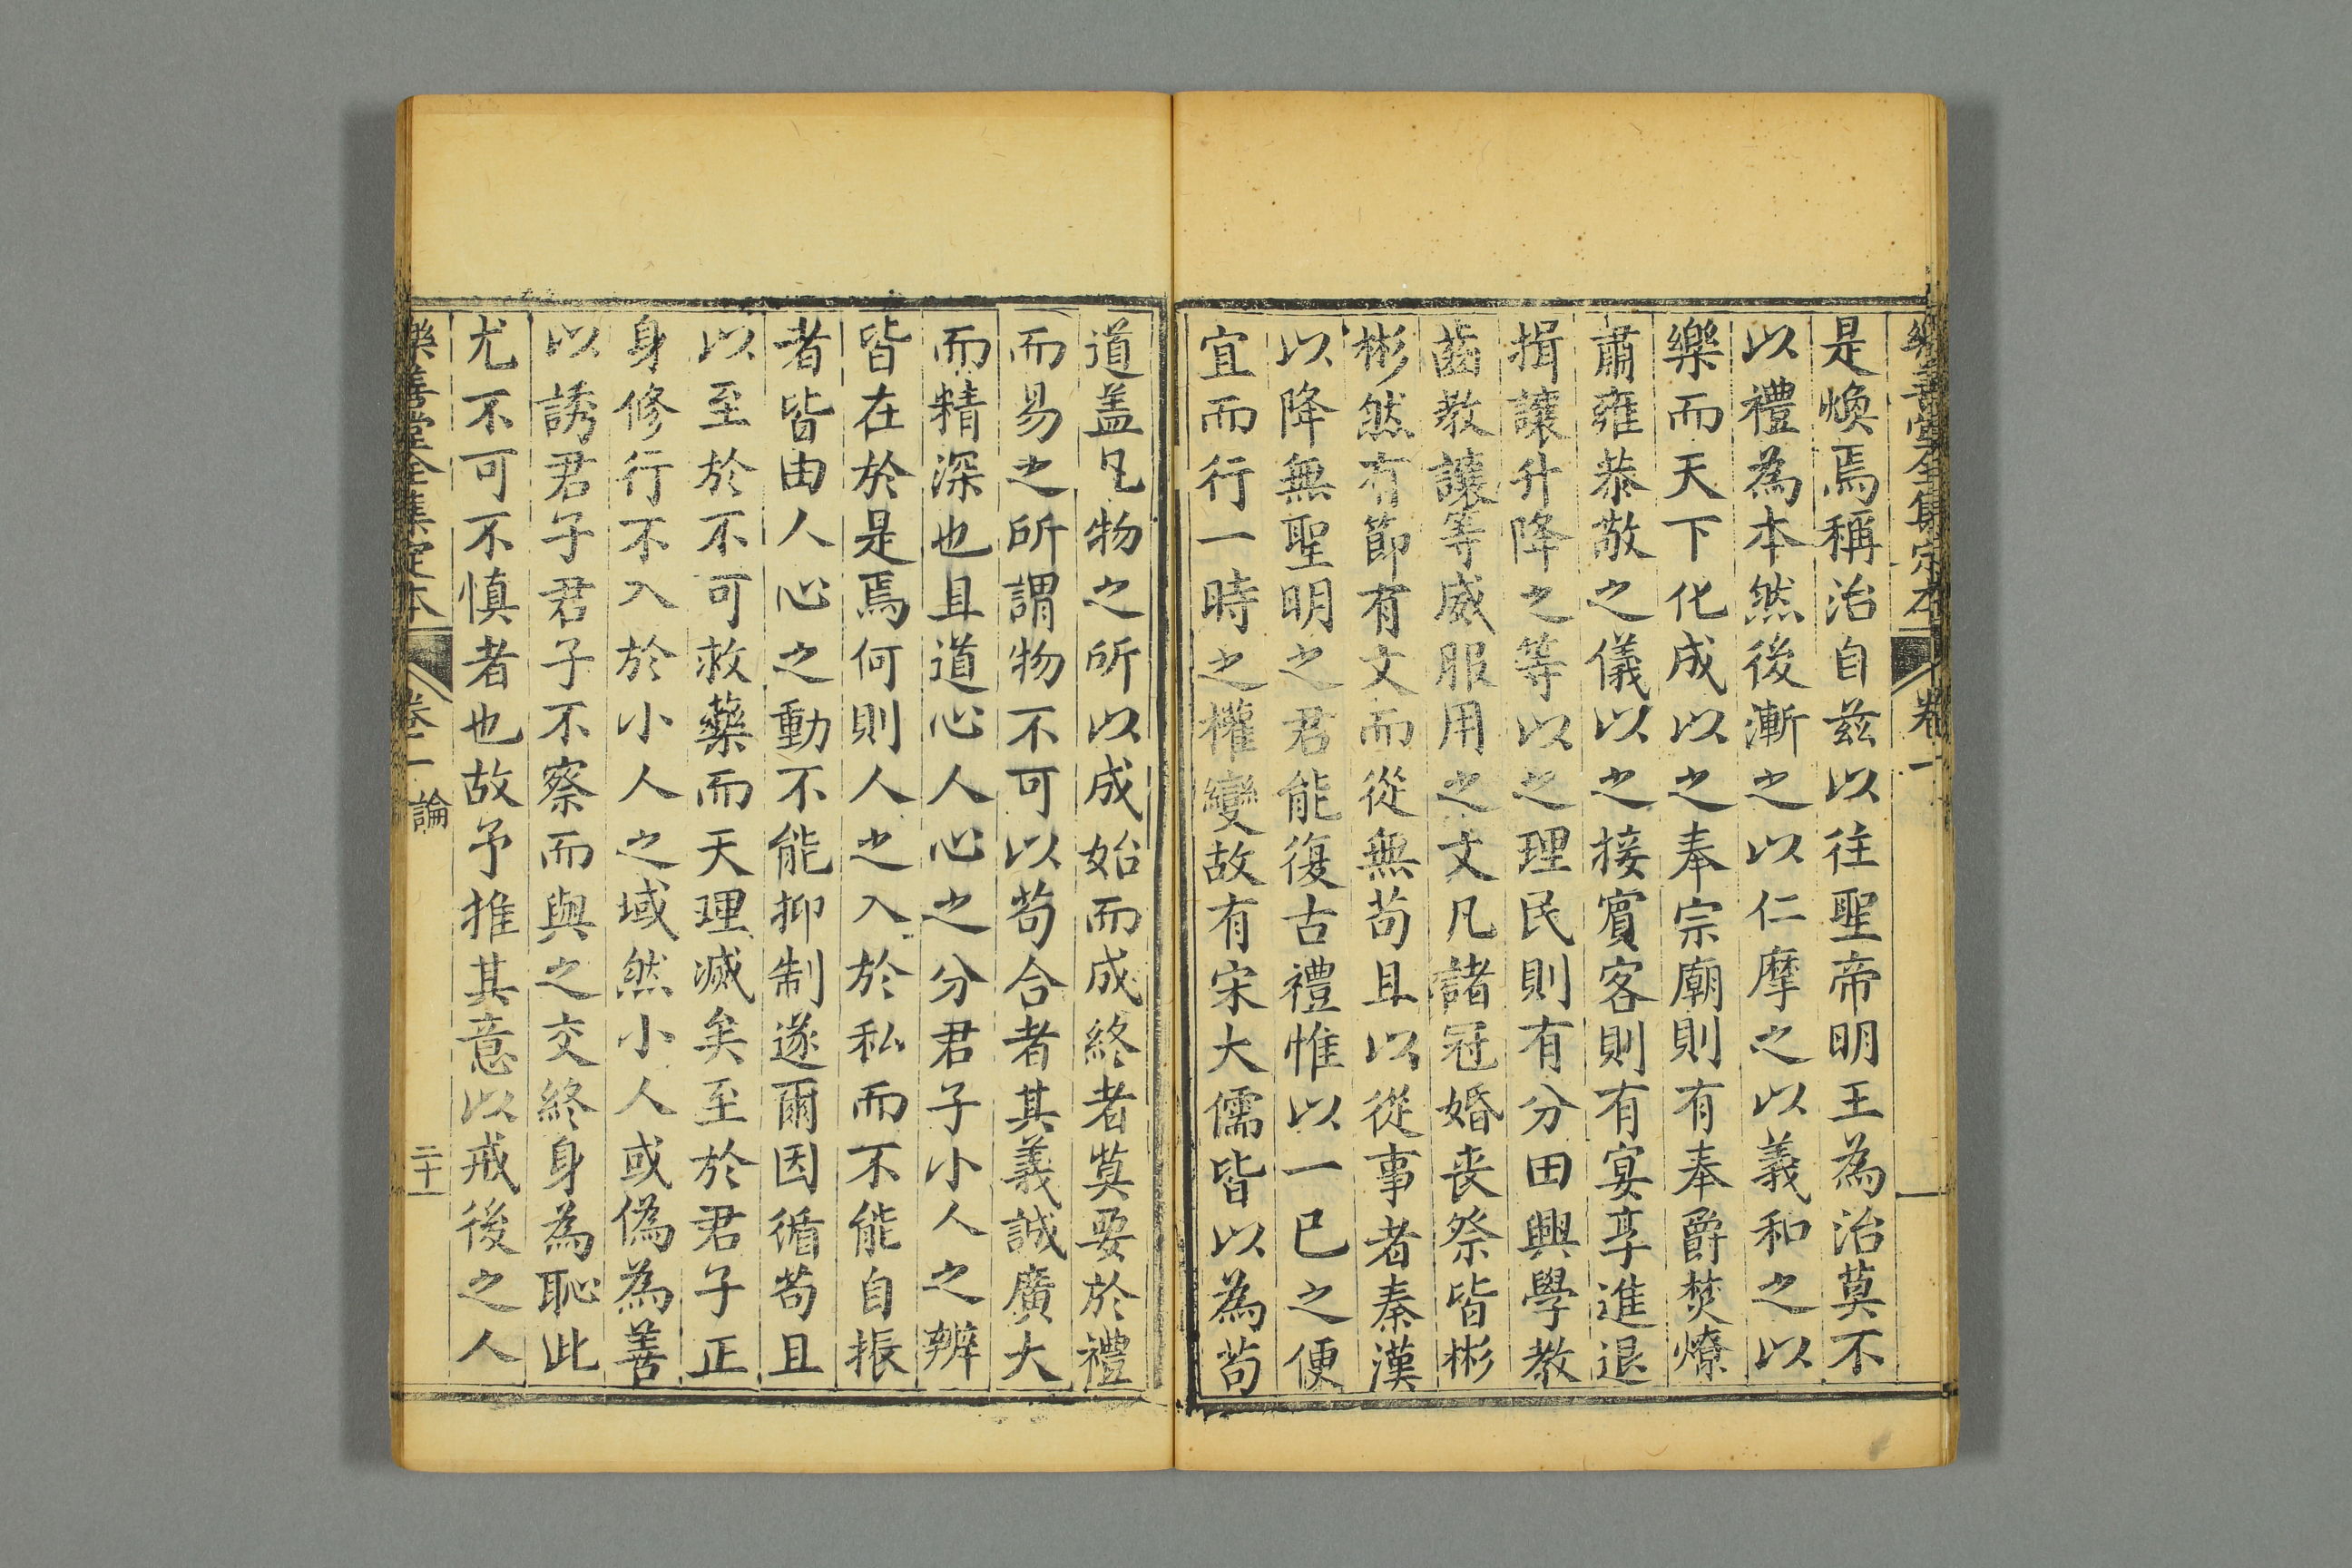 樂善堂全集定本 卷一
是煥焉稱治自兹以往聖帝明王為治莫不
以禮為本然後漸之以仁摩之以義和之以
樂而天下化成以之奉宗廟則有奉爵焚燎
肅雍恭敬之儀以之接賓客則有宴享進退
揖讓升降之等以之理民則有分田興學教
齒教讓等威服用之文凡諸冠婚丧祭皆彬
彬然有節有文而從無苟且以從事者秦漢
以降無聖明之君能復古禮惟以一已之便
宜而行一時之權變故有宋大儒皆以為苟
道盖凡物之所以成始而成終者莫要於禮
而易之所謂物不可以苟合者其義誠廣大
而精深也且道心人心之分君子小人之辨
皆在於是焉何則人之入於私而不能自振
者皆由人心之動不能抑制遂爾因循苟且
以至於不可救藥而天理滅矣至於君子正
身修行不入於小人之域然小人或偽為善
以誘君子君子不察而與之交終身為恥此
尤不可不慎者也故予推其意以戒後之人
樂善堂全集定本 卷一 論 二十一